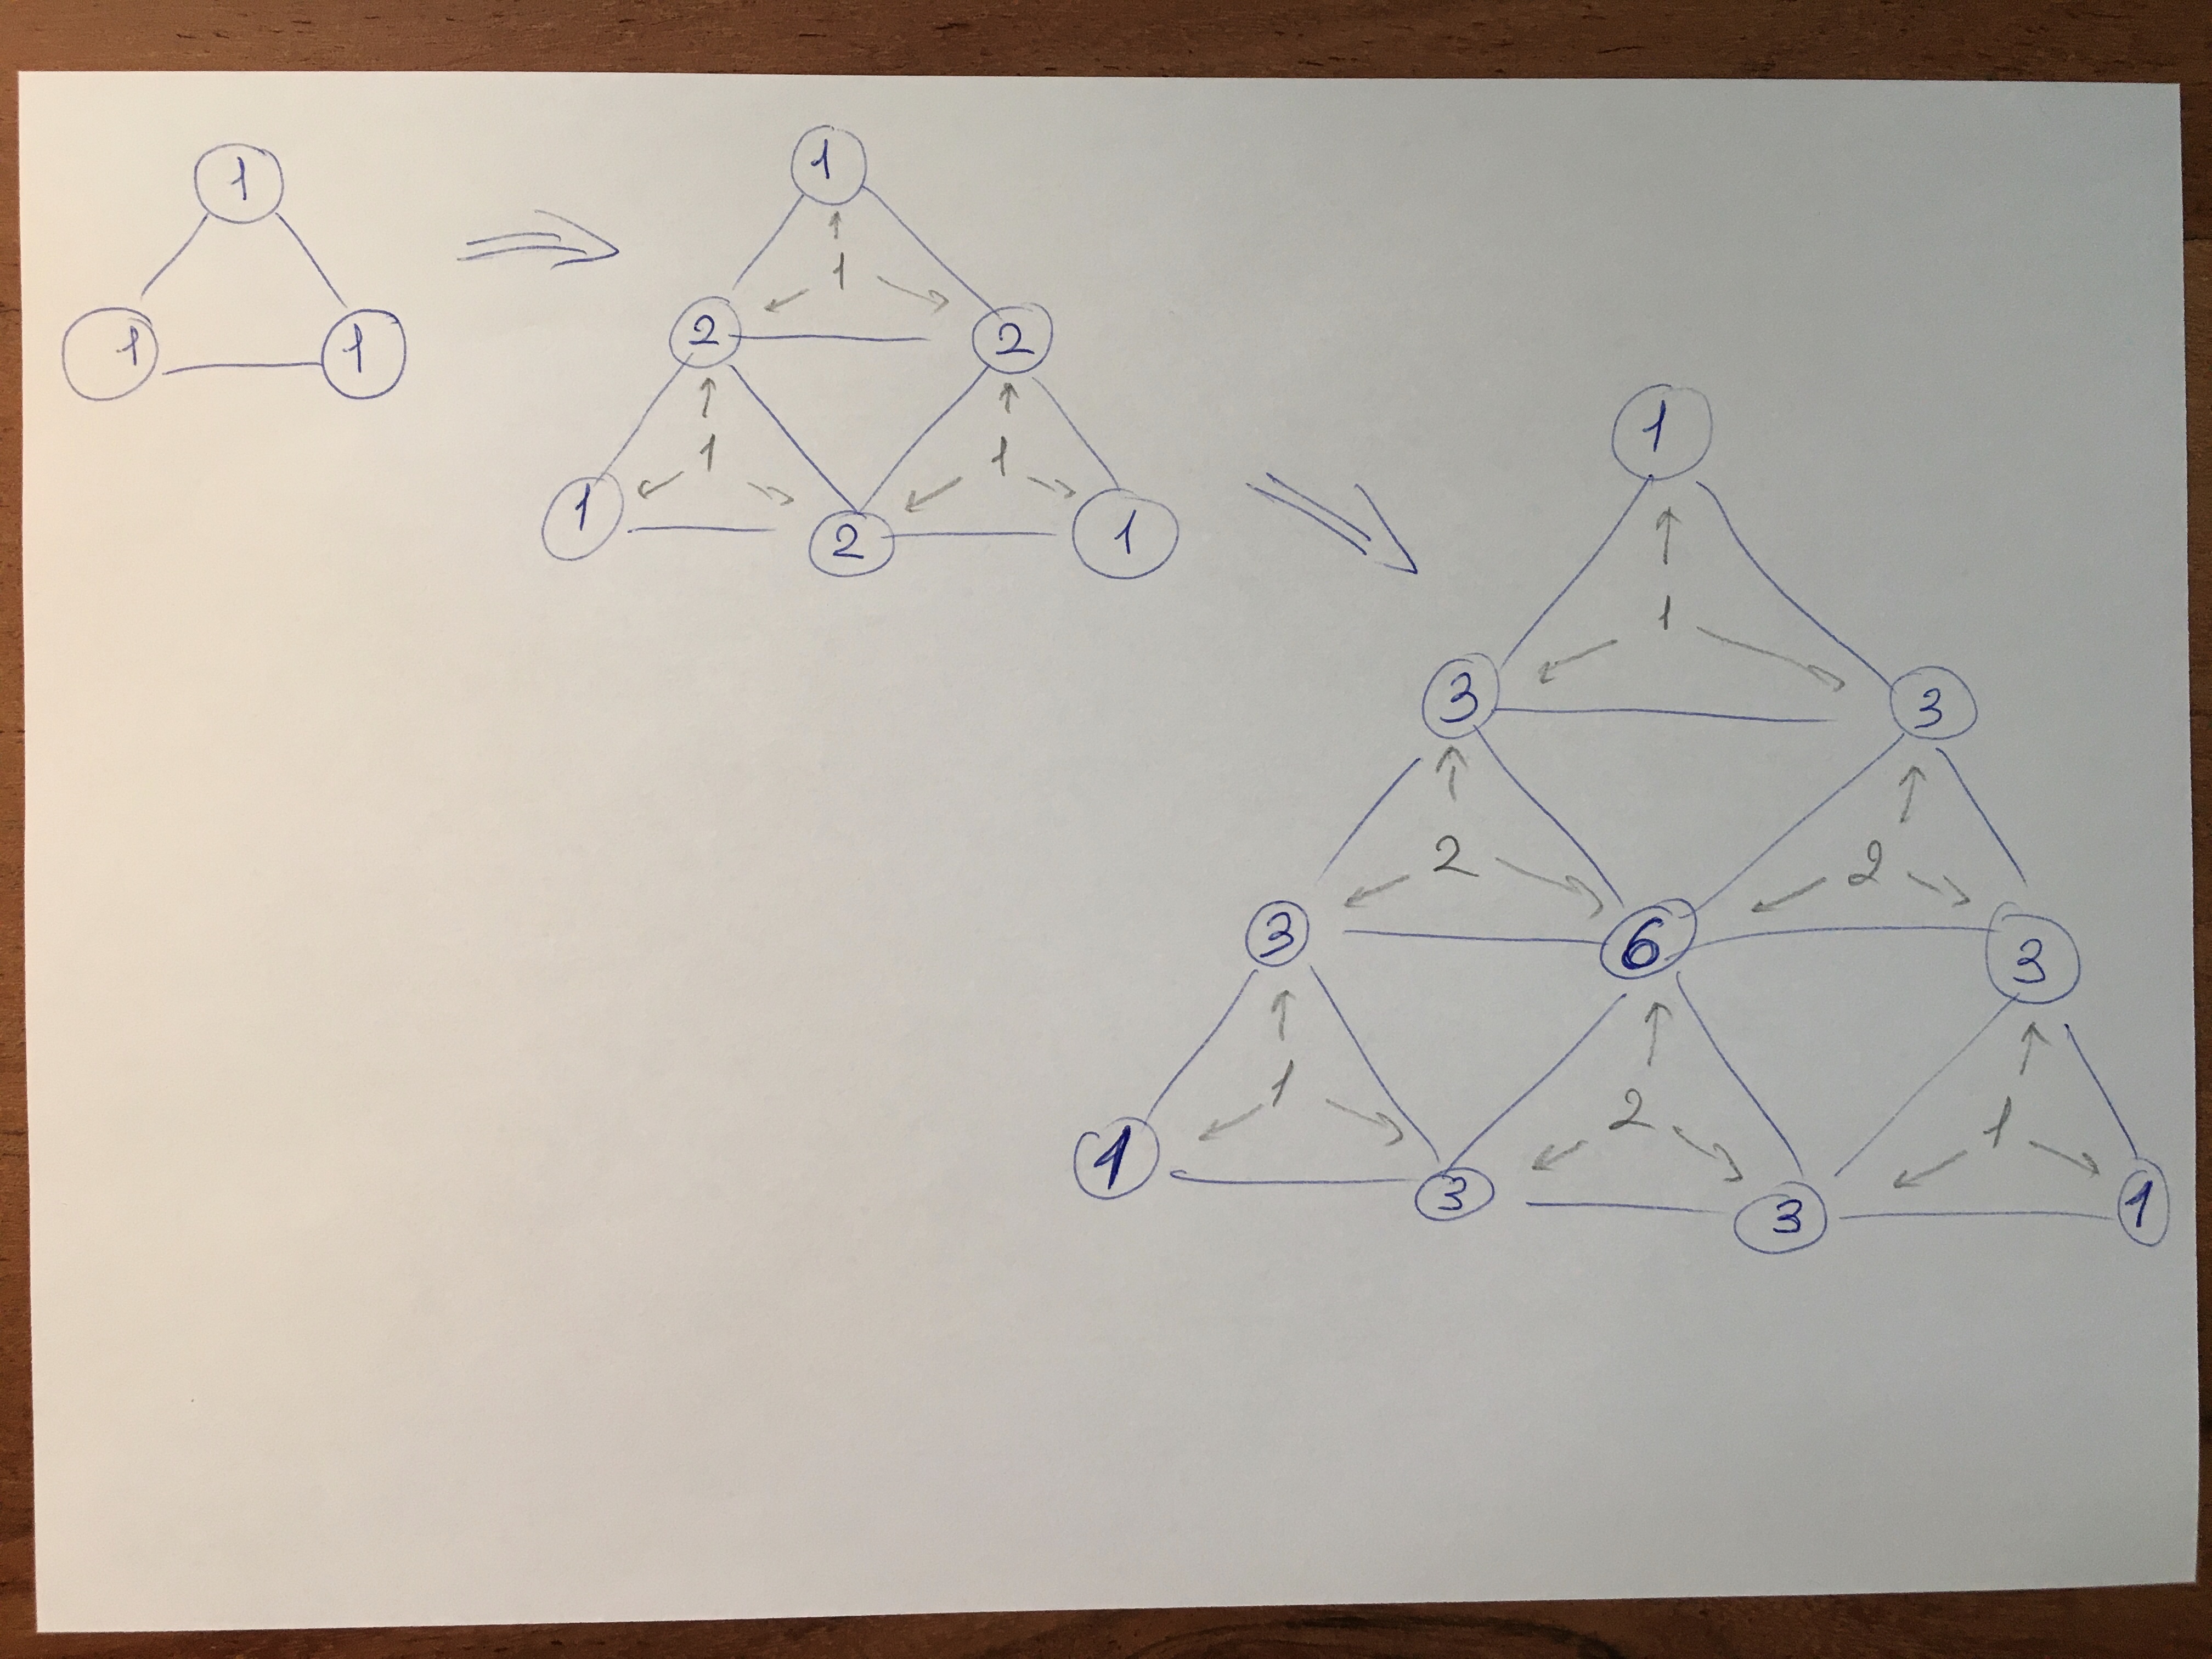 1
1 1
1
1
2 2
1 1
1 2 1
1
1
3 3
2 2
3 6 3
1 2 1
1 3 3 1